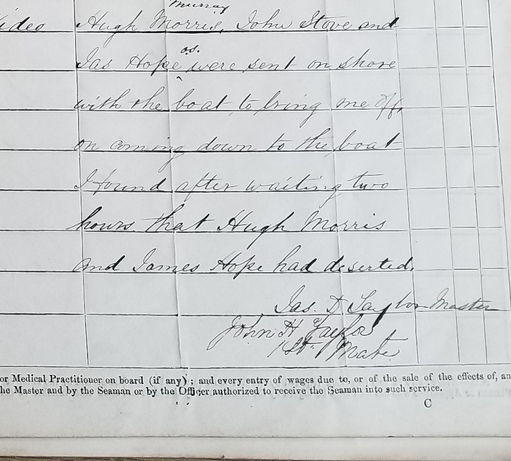 Murray
video Hugh Morris, John Stove and
as.
Jas Hope were sent on shore
with the boat to bring me off,
on coming down to the boat
I found after waiting two
hours that Hugh Morris
and James Hope had deserted.
Jas. D Taylor Master
John H Taylor
1st Mate
or Medical Practitioner on board (if any); and every entry of wages due to, or of the sale of the effects of, an
the Master and by the Seaman or by the Officer authorized to receive the Seaman into such service.
C